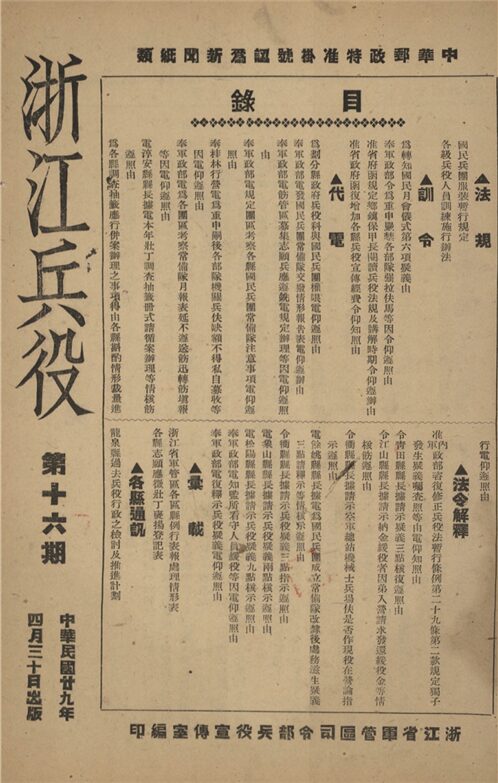 中華郵政特准掛號認為新聞紙類
浙江兵役
第十六期
中華民國廿九年
四月三十日出版
目錄
▲法規
國民兵團服裝暫行規定
各級兵役人員訓練施行辦法
▲訓令
為轉知國民月會儀式第六項疑義由
奉軍政部令為重申嚴禁各部隊強拉伕馬等因令仰遵照由
准省府函規定鄉鎮保甲長閱讀兵役法規及講解時期令仰遵辦由
准省政府函復增加各縣兵役宣傳經費令仰知照由
▲代電
為劃分縣政府兵役科與國民兵團權限電仰遵照由
奉軍政部電發國民兵團常備隊交撥情形報告表電仰遵辦由
奉軍政部電飭管區募集志願兵應遵銑電規定辦理等因電仰遵照
由
奉軍政部電規定團區考察各縣國民兵團常備隊注意事項電仰遵
照由
奉桂林行營電為重申嗣後各部隊機關兵伕缺額不得私自募收等
因電仰遵照由
奉軍政部電為各團區考察常備隊月報表延不遵送飭迅轉飭填報
等因電仰遵照由
電淳安縣縣長據電本年壯丁調查抽籤冊式請循案辦理等情核飭
遵照由
為各縣調查抽籤應行併案辦理之事項得由各縣斟酌情形裁量進
行電仰遵照由
▲法令解釋
准內政部咨復修正兵役法暫行條例第二十九條第二款規定獨子
發生疑義囑查照等由電仰知照由
令青田縣縣長據請示疑義三點核復遵照由
令江山縣縣長據請示納金緩役者因弟入營請求發還緩役金等情
核飭遵照由
令衢縣縣長據請示空軍總站機械士兵場伕是否作現役在營論指
示遵照由
電餘姚縣縣長據電為國民兵團成立常備隊改隸後處務滋生疑義
三點請釋示等情核示遵照由
令衢縣縣長據請示兵役疑義三點指示遵照由
電樂山縣縣長據請示兵役疑義兩點核示遵照由
電松陽縣縣長據請示兵役疑義九點核示遵照由
奉軍政部電知監所看守人員緩役等因電仰遵照由
奉軍政部電復釋示兵役疑義電仰遵照由
▲彙載
浙江省軍管區各區縣例行表報處理情形表
各縣志願應徵壯丁褒揚登記表
▲各縣通訊
龍泉縣過去兵役行政之檢討及推進計劃
浙江省軍管區司令部兵役宣傳室編印